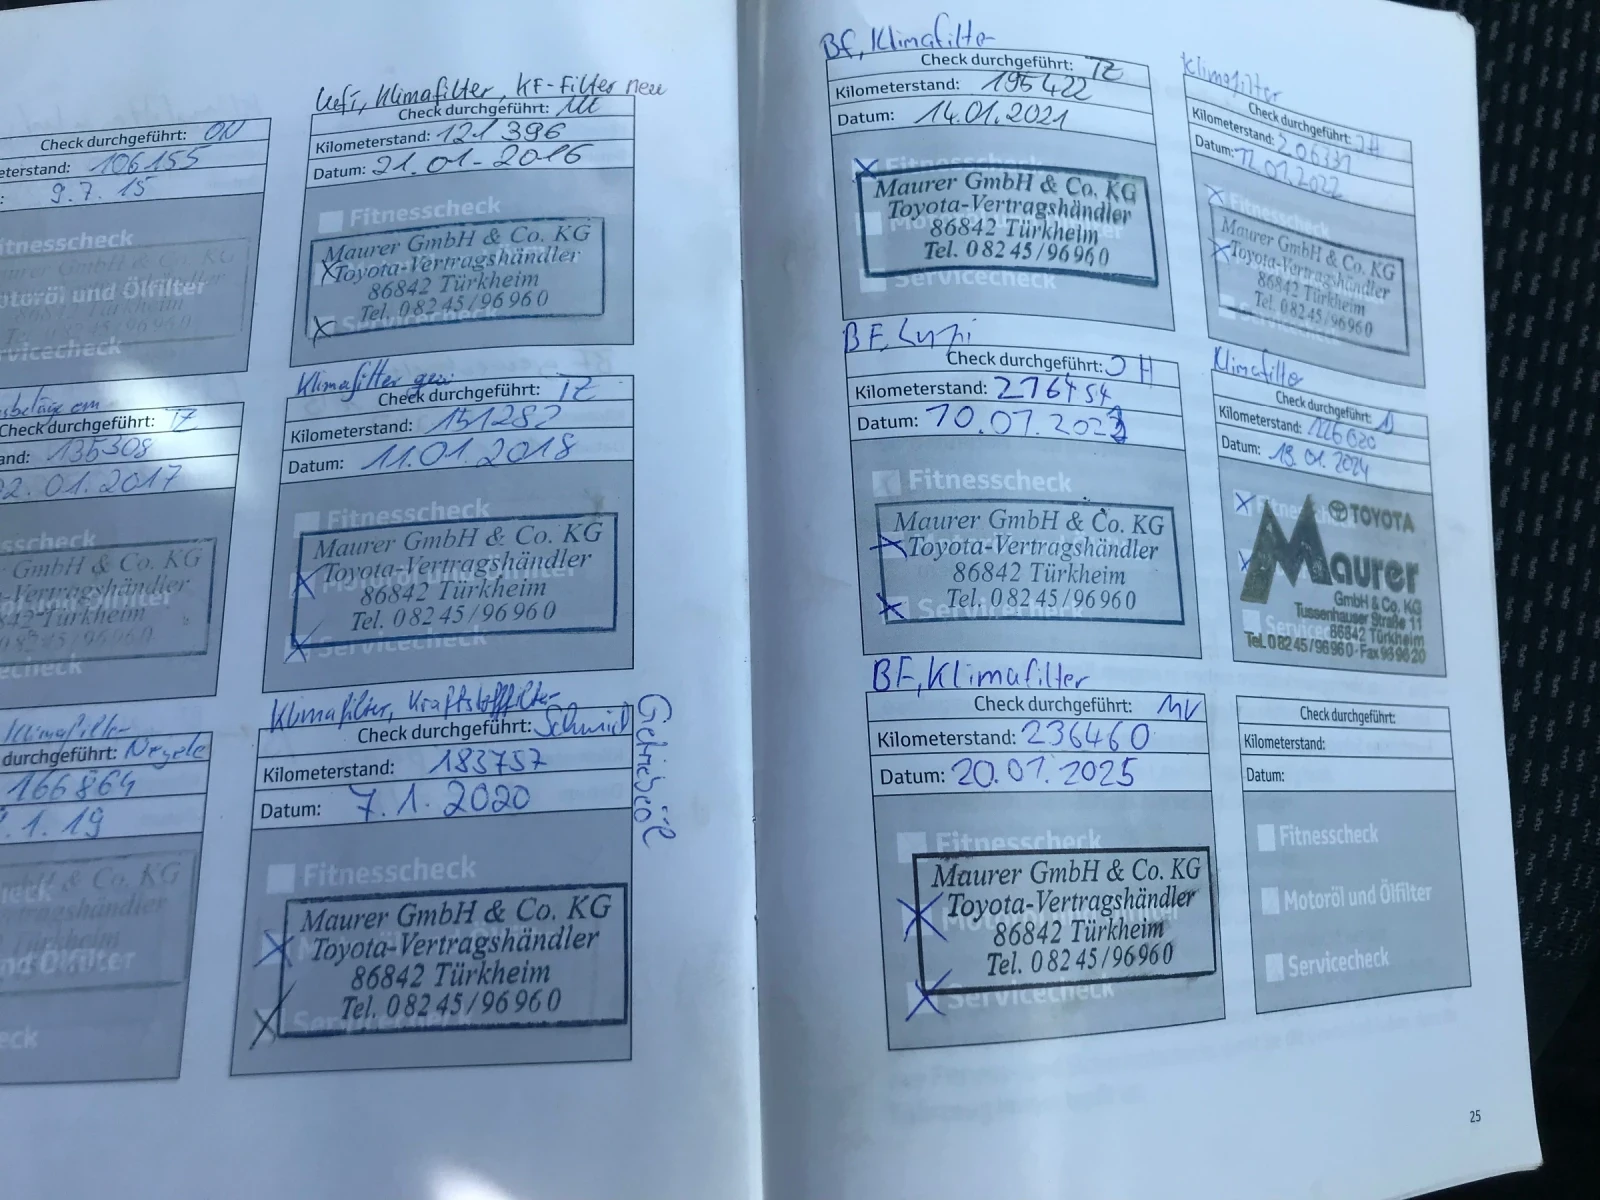 Check durchgeführt: OU
eterstand: 106155
: 9.7.15
itnesscheck
aurer GmbH & Co. KG
otoröl und Ölfilter
86842 Türkheim
Tel. 08245/96960
rvicecheck
Lufi, Klimafilter, KF-Filter neu
Check durchgeführt:
Kilometerstand: 121396
Datum: 21.01-2016
Fitnesscheck
Maurer GmbH & Co. KG
Toyota-Vertragshändler
86842 Türkheim
Tel. 08245/96960
Servicecheck
sbeläge
Check durchgeführt: TZ
and: 135308
02.01.2017
sscheck
GmbH & Co. KG
-Vertragshändler
842 Türkheim
08245/96960
echeck
Klimafilter
Check durchgeführt: TZ
Kilometerstand: 151282
Datum: 11.01.2018
Fitnesscheck
Maurer GmbH & Co. KG
Toyota-Vertragshändler
86842 Türkheim
Tel. 08245/96960
Servicecheck
Klimafilter
durchgeführt: Negele
166864
.1.19
eck
& Co. KG
rtragshändler
Türkheim
nd Ölfilter
eck
Klimafilter, Kraftstofffilter
Getriebeöl
Check durchgeführt: Schmid
Kilometerstand: 183757
Datum: 7.1.2020
Fitnesscheck
Maurer GmbH & Co. KG
Toyota-Vertragshändler
86842 Türkheim
Tel. 08245/96960
Servicecheck
BF, Klimafilter
Check durchgeführt: TZ
Kilometerstand: 195422
Datum: 14.01.2021
Fitnesscheck
Maurer GmbH & Co. KG
Toyota-Vertragshändler
86842 Türkheim
Tel. 08245/96960
Servicecheck
Klimafilter
Check durchgeführt: JH
Kilometerstand: 206331
Datum: 12.01.2022
Fitnesscheck
Maurer GmbH & Co. KG
Toyota-Vertragshändler
86842 Türkheim
Tel. 08245/96960
BF, Lufi
Check durchgeführt: JH
Kilometerstand: 216454
Datum: 10.01.2023
Fitnesscheck
Maurer GmbH & Co. KG
Toyota-Vertragshändler
86842 Türkheim
Tel. 08245/96960
Servicecheck
Klimafilter
Check durchgeführt:
Kilometerstand: 226620
Datum: 18.01.2024
TOYOTA
Maurer
GmbH & Co. KG
Tussenhauser Straße 11
86842 Türkheim
Tel. 08245/96960 · Fax 969620
BF, Klimafilter
Check durchgeführt: MV
Kilometerstand: 236460
Datum: 20.01.2025
Fitnesscheck
Maurer GmbH & Co. KG
Toyota-Vertragshändler
86842 Türkheim
Tel. 08245/96960
Servicecheck
Check durchgeführt:
Kilometerstand:
Datum:
Fitnesscheck
Motoröl und Ölfilter
Servicecheck
25